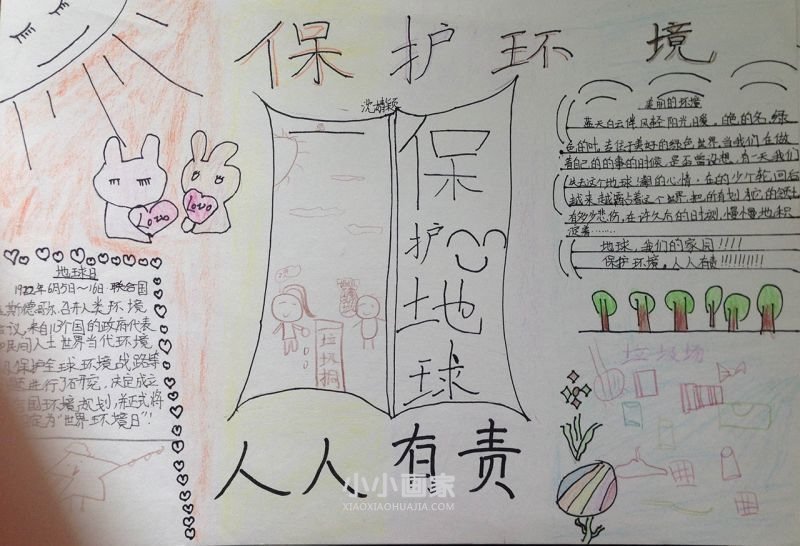 保护环境
沈婧颖
保护地球
垃圾桶
Love
Love
地球日
1922年6月5日~16日联合国
斯德哥尔召开人类环境
会议,来自113个国的政府代表
和民间人士世界当代环境
及保护全球环境战路等
进行了研究,决定成立
国环境规划,并正式将
定为"世界环境日"!
美丽的环境
蓝天白云伴风轻阳光日暖,白色的名,绿
色的叶,去征于美好的绿色世界,当我们在做
着自己的的事的时候,是否曾设想,有一天我们
失去这个地球 的心情,在的少个轮回后
越来越离 着这个世界,把所有划
有多少悲伤,在许久后的日 ,慢慢地积
淀着……
地球,我们的家园!!!!
保护环境,人人有责!!!!!!!!!!
垃圾场
人人有责
小小画家
XIAOXIAOHUAJIA.COM